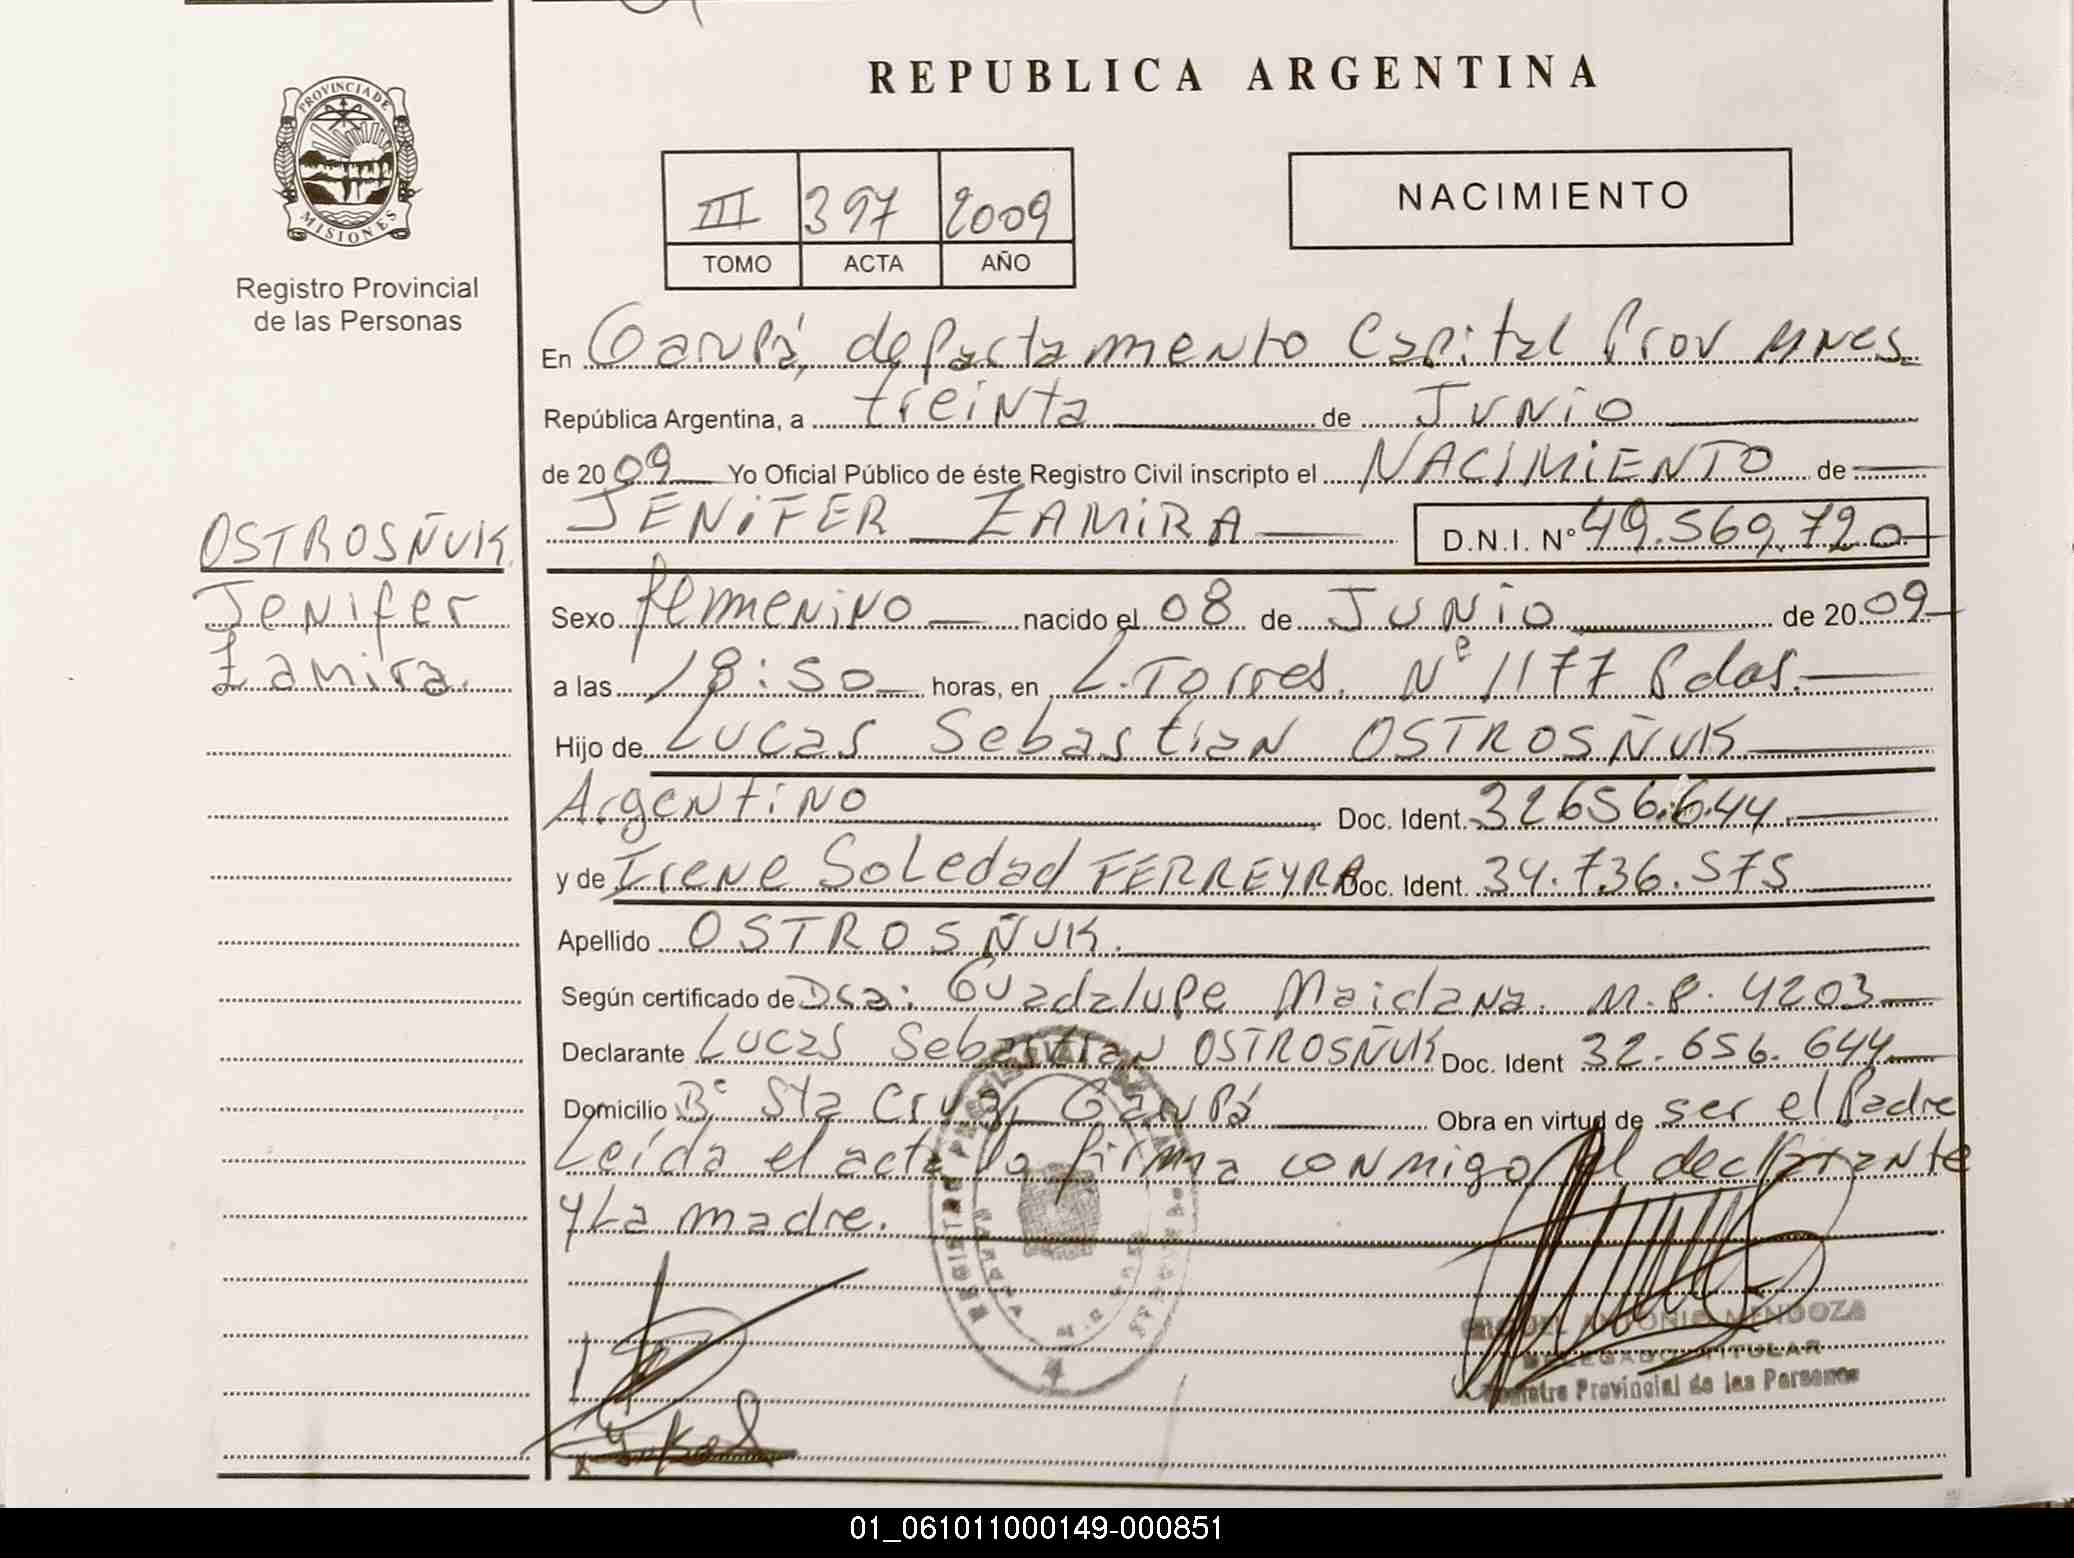 REPUBLICA ARGENTINA
PROVINCIA DE
MISIONES
Registro Provincial
de las Personas
III 397 2009
TOMO ACTA AÑO
NACIMIENTO
En Garupá, departamento Capital Prov Mnes.
República Argentina, a treinta de Junio
de 2009 Yo Oficial Público de éste Registro Civil inscripto el NACIMIENTO de
JENIFER ZAMIRA D.N.I. N° 49.569.720
OSTROSÑUK
Jenifer
Zamira.
Sexo femenino nacido el 08 de JUNio de 2009
a las 18:50 horas, en L. Torres. Nº 1177 Pdas.
Hijo de Lucas Sebastian OSTROSÑUK
Argentino Doc. Ident. 32656.644
y de Irene Soledad FERREYRA Doc. Ident. 34.736.575
Apellido OSTROSÑUK.
Según certificado de Dra: Guadalupe Maidana. M.P. 4203
Declarante Lucas Sebastian OSTROSÑUK Doc. Ident 32.656.644
Domicilio Bº Sta Cruz, Garupá Obra en virtud de ser el Padre
Leída el acta la firma conmigo el declarante
y La madre.
MIGUEL ANTONIO MENDOZA
DELEGADO TITULAR
Registro Provincial de las Personas
01_061011000149-000851